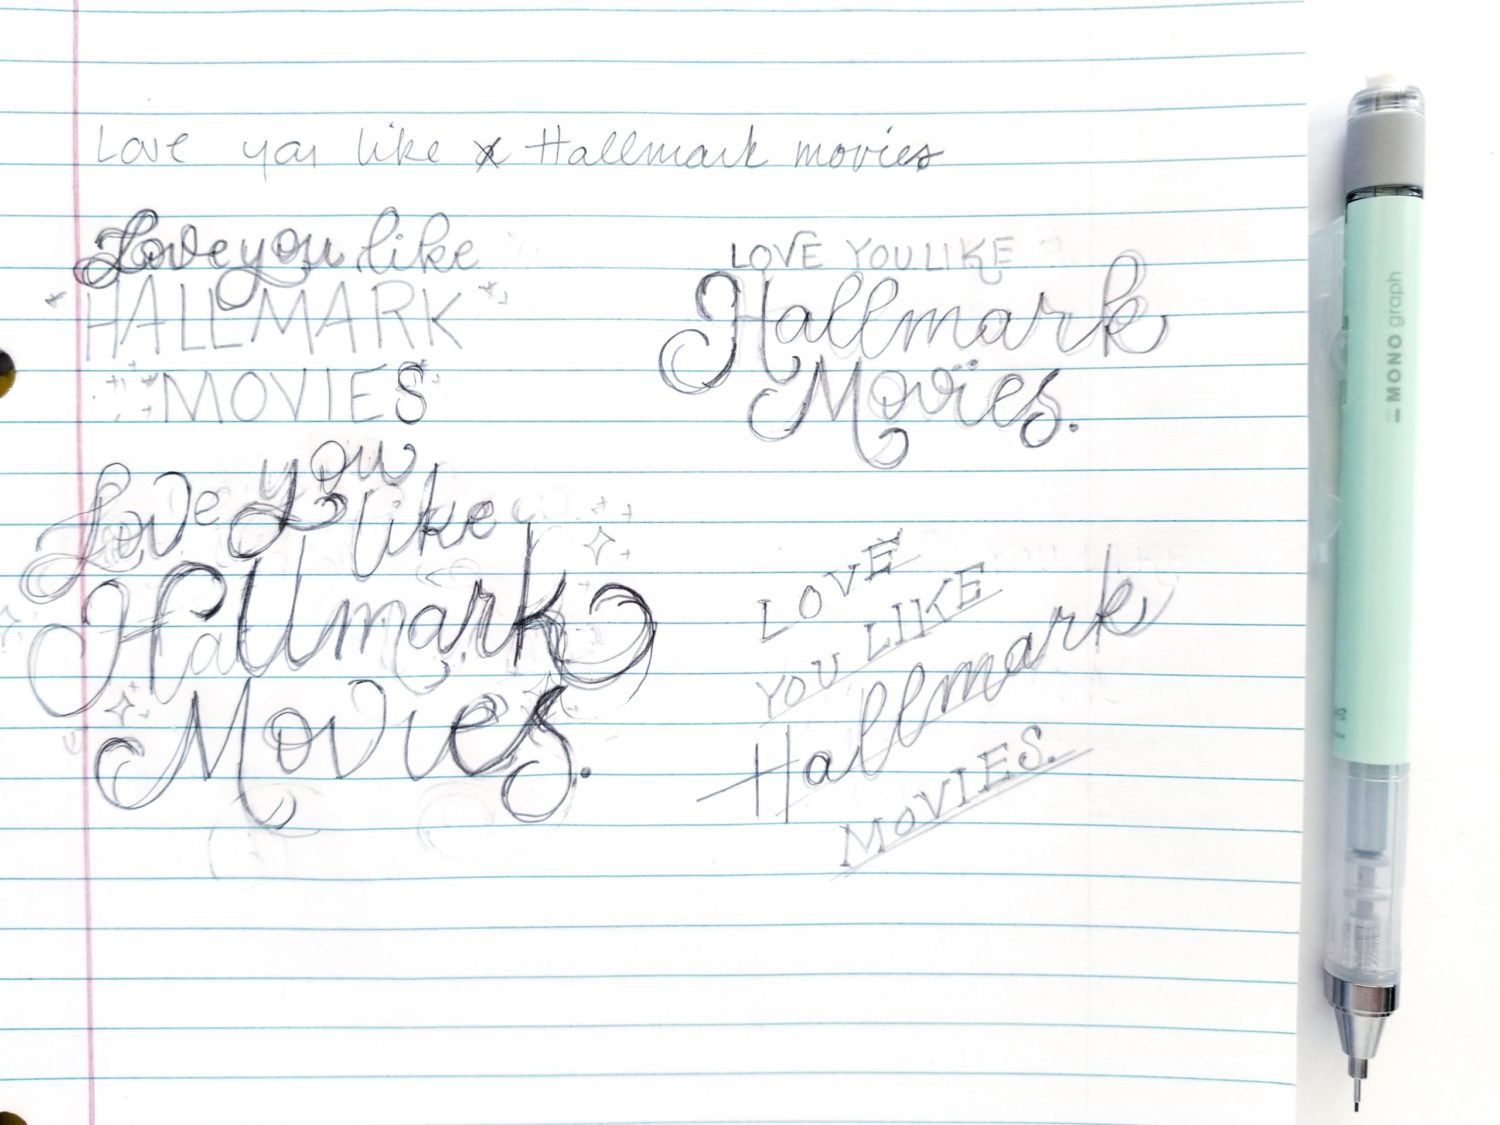 Love you like Hallmark movies
Love you like
HALLMARK
MOVIES
LOVE YOU LIKE
Hallmark
Movies.
Love you like
Hallmark
Movies.
LOVE
YOU LIKE
Hallmark
MOVIES.
MONO graph